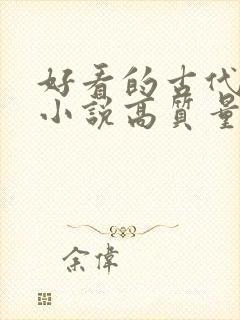 好看的古代
小説高質量
余偉